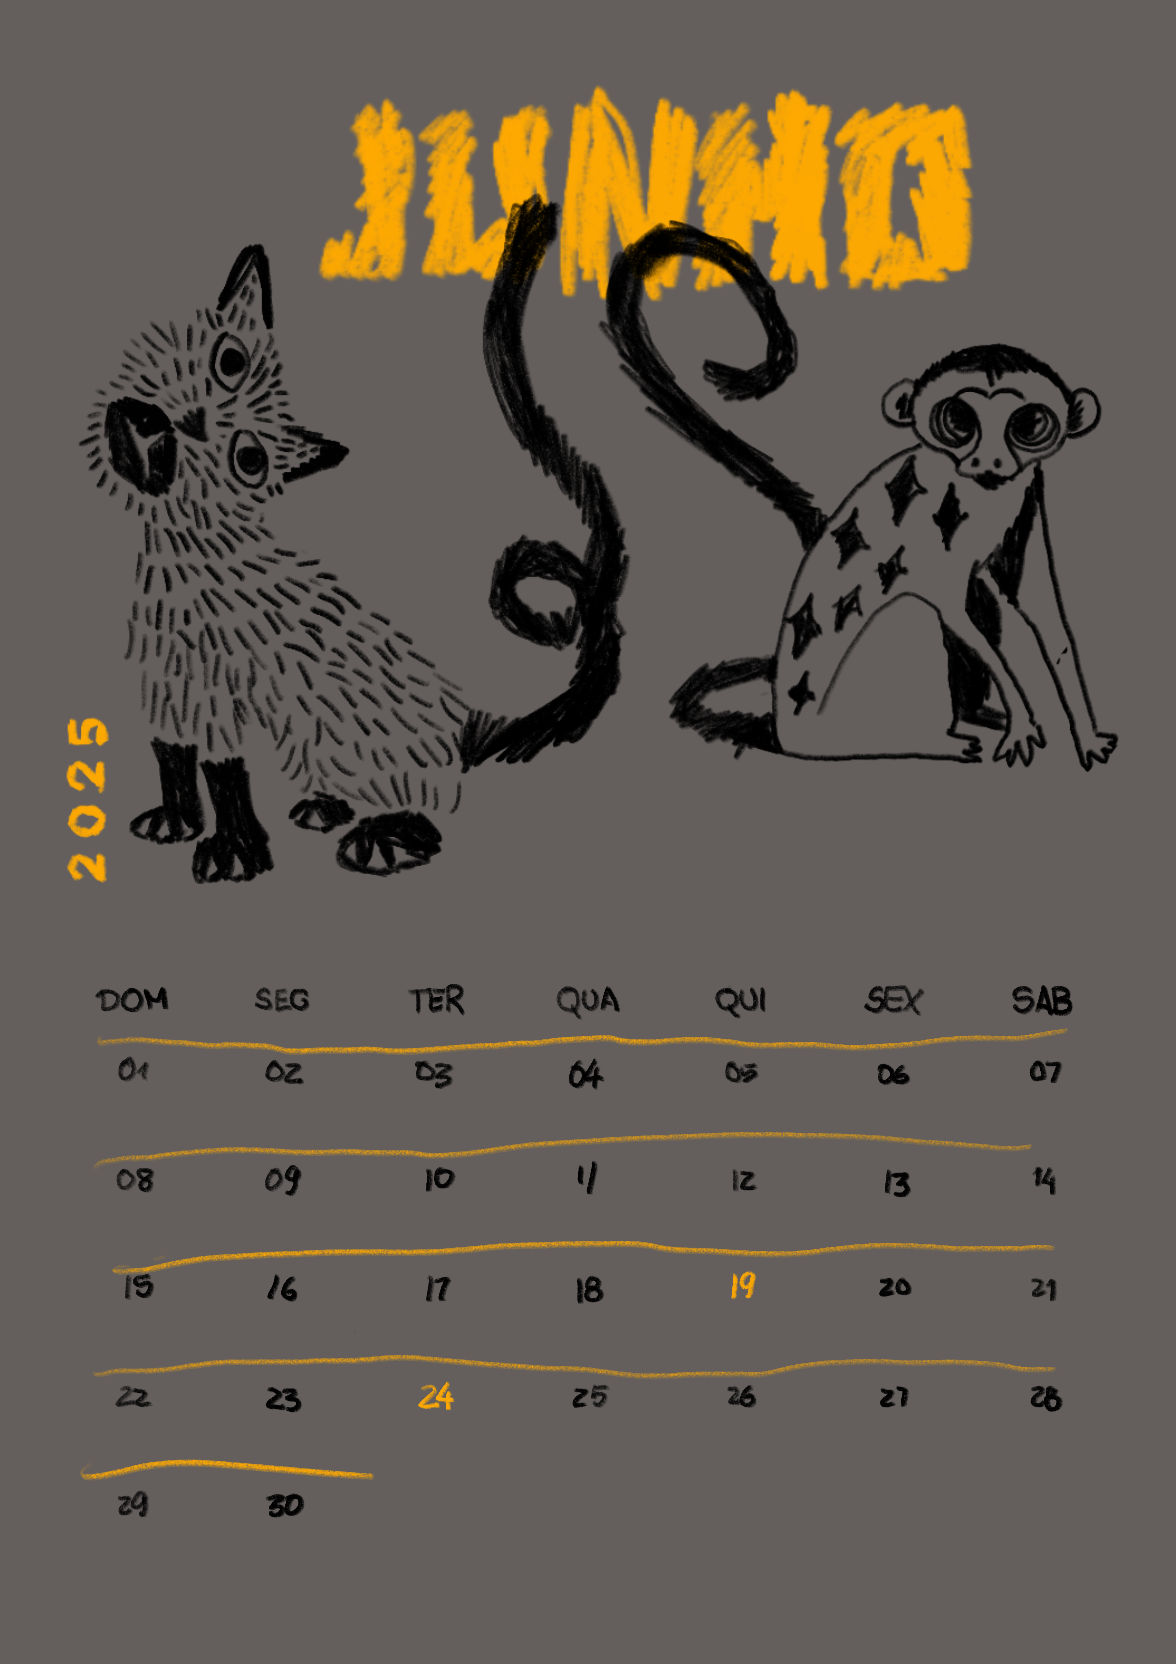 JUNHO
2025
DOM SEG TER QUA QUI SEX SAB
01 02 03 04 05 06 07
08 09 10 11 12 13 14
15 16 17 18 19 20 21
22 23 24 25 26 27 28
29 30